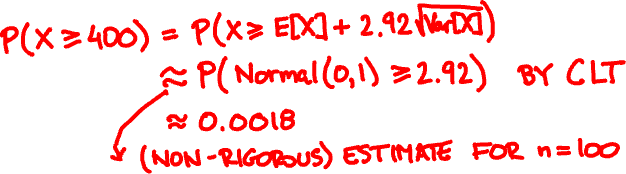 P(X ≥ 400) = P(X ≥ E[X] + 2.92 √Var[X])
≈ P(Normal(0,1) ≥ 2.92) BY CLT
≈ 0.0018
(NON-RIGOROUS) ESTIMATE FOR n=100